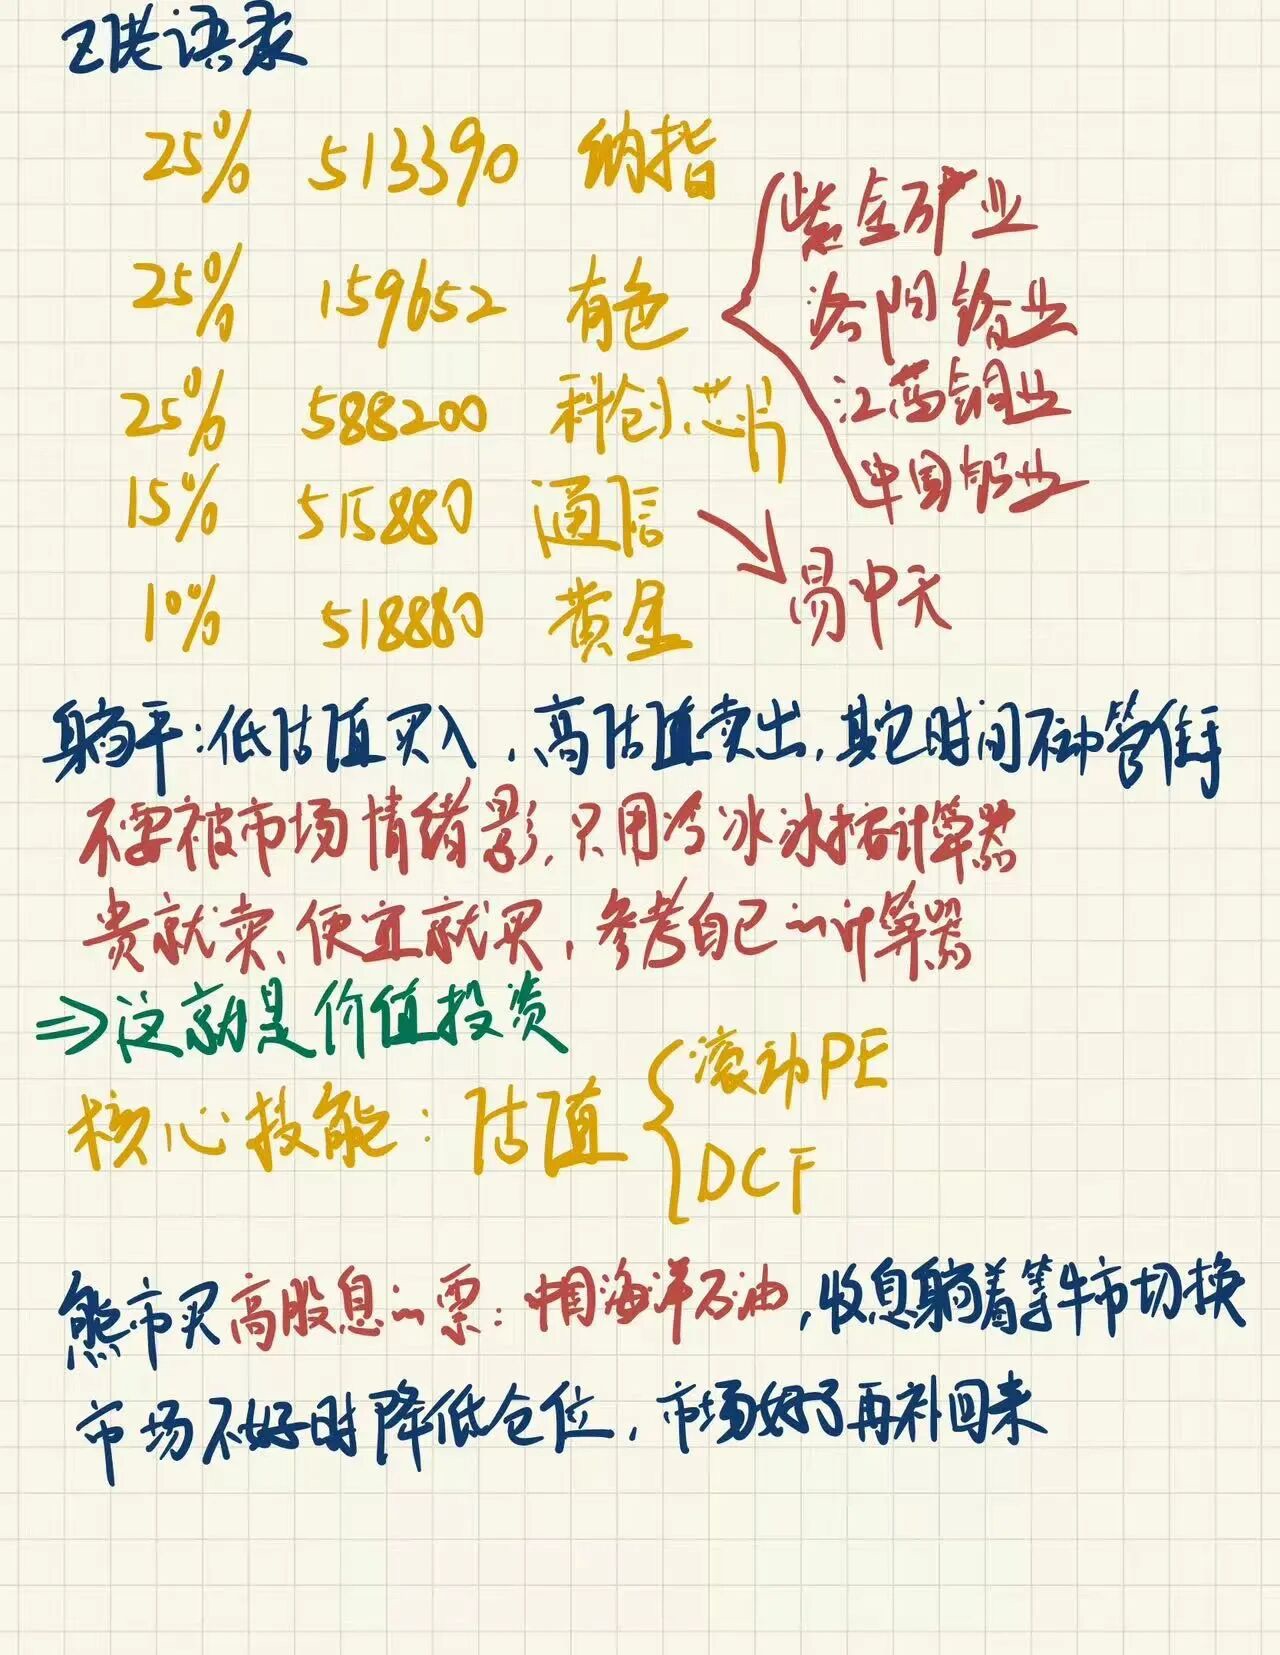 Z佬语录
25% 513390 纳指
25% 159652 有色
紫金矿业
洛阳钼业
江西铜业
中国铝业
25% 588200 科创芯片
15% 515880 通信
易中天
10% 518880 黄金
躺平:低估值买入,高估值卖出,其它时间不动管住手
不要被市场情绪影,只用冷冰冰按计算器
贵就卖、便宜就买,参考自己的计算器
⇒这就是价值投资
核心技能:估值
滚动PE
DCF
熊市买高股息的票:中国海洋石油,收息躺着等牛市切换
市场不好时降低仓位,市场好了再补回来